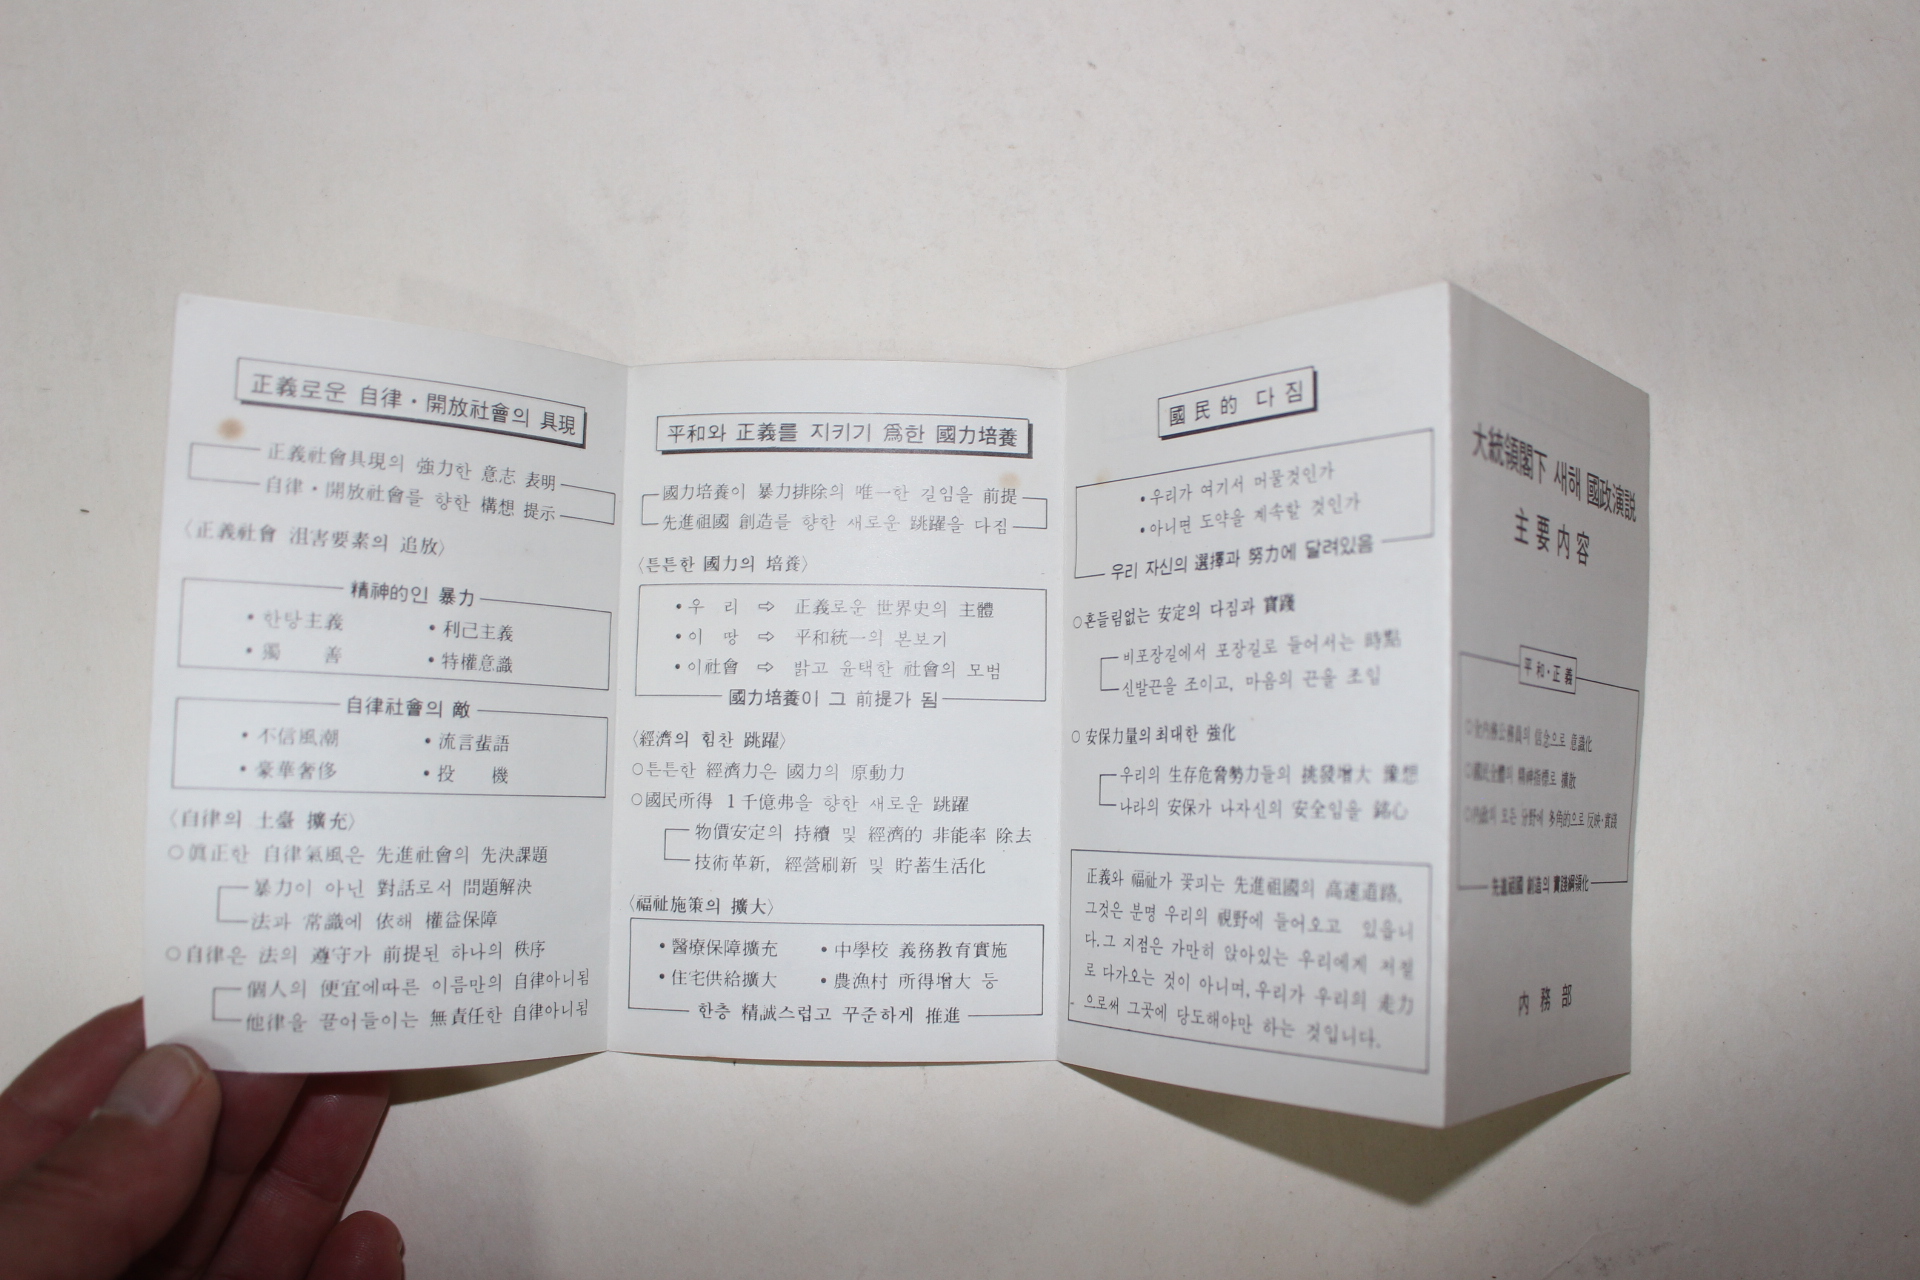 正義로운 自律·開放社會의 具現
正義社會具現의 強力한 意志 表明
自律·開放社會를 향한 構想 提示
〈正義社會 沮害要素의 追放〉
精神的인 暴力
•한탕主義 •利己主義
•獨 善 •特權意識
自律社會의 敵
•不信風潮 •流言蜚語
•豪華奢侈 •投 機
〈自律의 土臺 擴充〉
○眞正한 自律氣風은 先進社會의 先決課題
暴力이 아닌 對話로서 問題解決
法과 常識에 依해 權益保障
○自律은 法의 遵守가 前提된 하나의 秩序
個人의 便宜에따른 이름만의 自律아니됨
他律을 끌어들이는 無責任한 自律아니됨
平和와 正義를 지키기 爲한 國力培養
國力培養이 暴力排除의 唯一한 길임을 前提
先進祖國 創造를 향한 새로운 跳躍을 다짐
〈튼튼한 國力의 培養〉
•우 리 ⇨ 正義로운 世界史의 主體
•이 땅 ⇨ 平和統一의 본보기
•이社會 ⇨ 밝고 윤택한 社會의 모범
國力培養이 그 前提가 됨
〈經濟의 힘찬 跳躍〉
○튼튼한 經濟力은 國力의 原動力
○國民所得 1千億弗을 향한 새로운 跳躍
物價安定의 持續 및 經濟的 非能率 除去
技術革新, 經營刷新 및 貯蓄生活化
〈福祉施策의 擴大〉
•醫療保障擴充 •中學校 義務教育實施
•住宅供給擴大 •農漁村 所得增大 등
한층 精誠스럽고 꾸준하게 推進
國民的 다짐
•우리가 여기서 머물것인가
•아니면 도약을 계속할 것인가
우리 자신의 選擇과 努力에 달려있음
○흔들림없는 安定의 다짐과 實踐
비포장길에서 포장길로 들어서는 時點
신발끈을 조이고, 마음의 끈을 조임
○安保力量의 최대한 強化
우리의 生存危脅勢力들의 挑發增大 豫想
나라의 安保가 나자신의 安全임을 銘心
正義와 福祉가 꽃피는 先進祖國의 高速道路.
그것은 분명 우리의 視野에 들어오고 있읍니
다.그 지점은 가만히 앉아있는 우리에게 저절
로 다가오는 것이 아니며, 우리가 우리의 走力
으로써 그곳에 당도해야만 하는 것입니다.
大統領閣下 새해 國政演說
主要內容
平和·正義
○全內務公務員의 信念으로 意識化
○國民全體의 精神指標로 擴散
○內務의 모든 分野에 多角的으로 反映·實踐
先進祖國 創造의 實踐綱領化
內務部